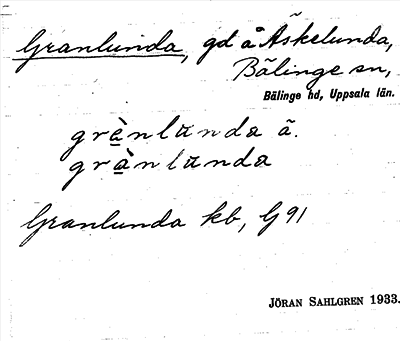 Granlunda, gd å Äskelunda,
Bälinge sn,
Bälinge hd, Uppsala län.
grạ̀nlunda ä.
grạ̀nlunda
Granlunda kb, G 91
JÖRAN SAHLGREN 1933.